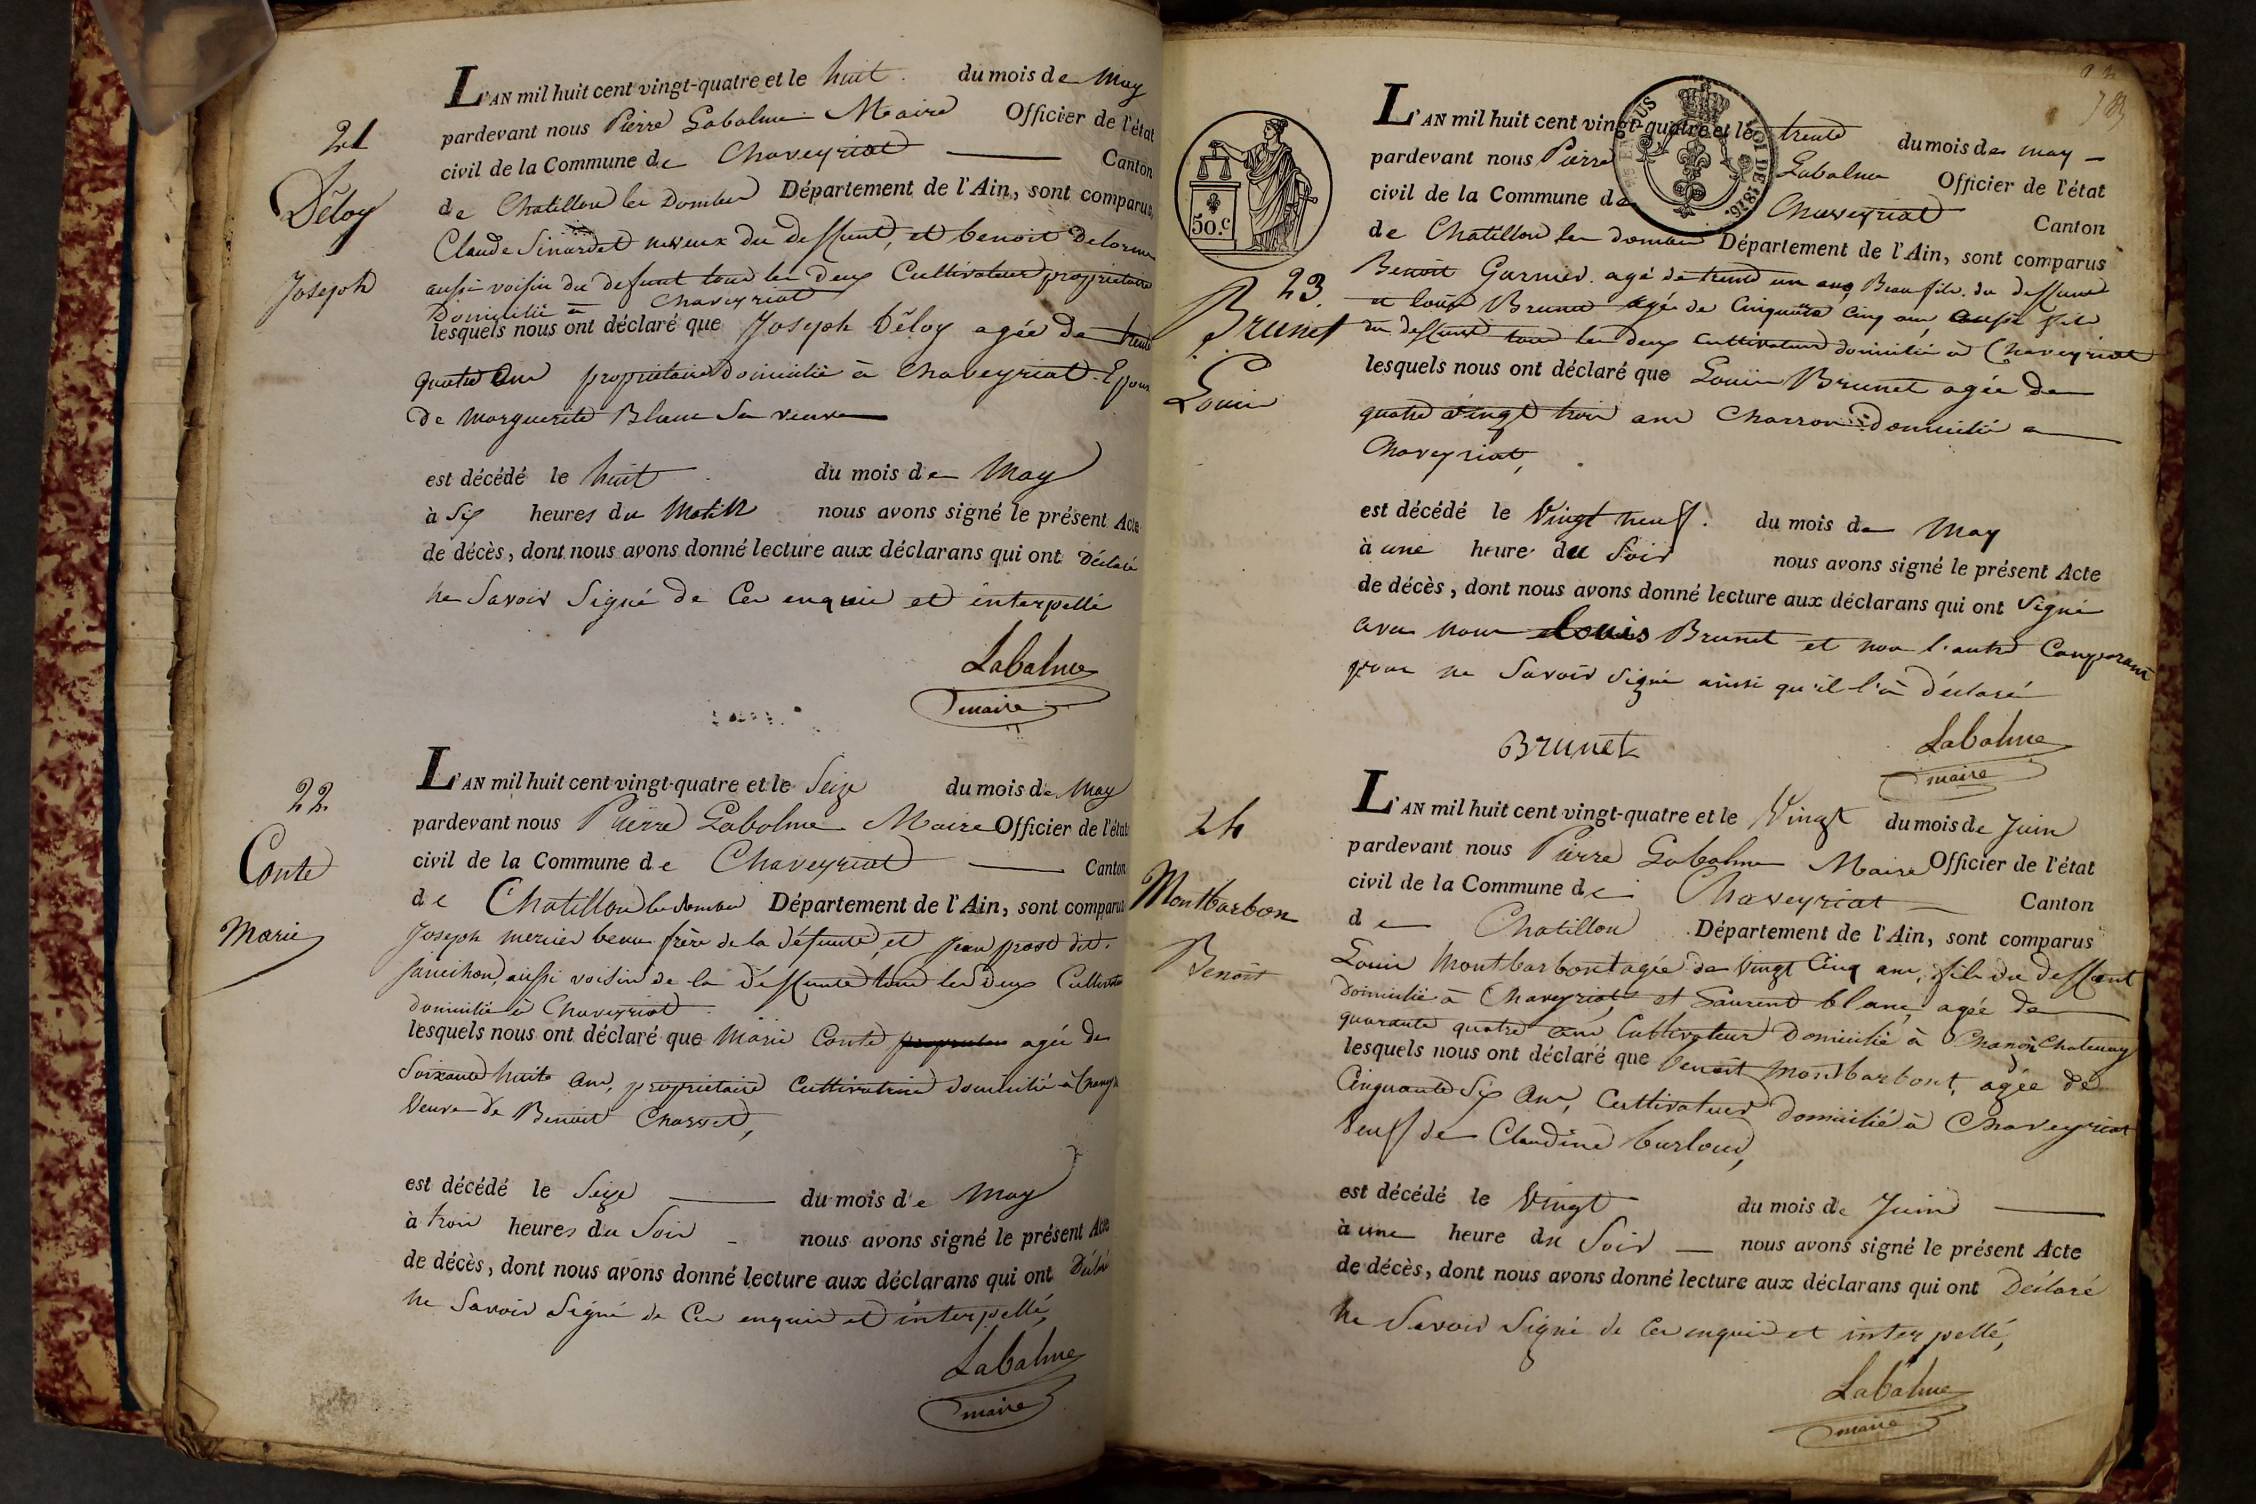 21
Déloy
Joseph
L'AN mil huit cent vingt-quatre et le huit du mois de may
pardevant nous Pierre Labalme Maire Officier de l'état
civil de la Commune de Chaveyriat Canton
de Chatillon les Dombes Département de l'Ain, sont comparus,
Claude Sinardet neveux du deffunt, et benoit Delorme
aussi voisin du defunt tous les deux Cultivateurs propriétaire
Domicilié à Chaveyriat
lesquels nous ont déclaré que Joseph Déloy agée de trente
quatre ans propriétaire domicilié à Chaveyriat Epoux
de Marguerite Blanc sa veuve
est décédé le huit du mois de May
à six heures du Matin nous avons signé le présent Acte
de décès, dont nous avons donné lecture aux déclarans qui ont Déclaré
ne Savoir Signé de Ce enquis et interpellé
Labalme
maire
22
Conte
Marie
L'AN mil huit cent vingt-quatre et le Seize du mois de May
pardevant nous Pierre Labalme Maire Officier de l'état
civil de la Commune de Chaveyriat Canton
de Chatillon les dombes Département de l'Ain, sont comparus
Joseph mercier beau frère de la défunte, et jean prost dit
aussi voisin de la deffunte tous les deux Cultivateur
domicilié à Chaveyriat
lesquels nous ont déclaré que Marie Conte agée de
Soixante huit ans, propriétaire Cultivatrice domicilié à
Veuve de Benoit Charvet,
est décédé le Seize du mois de May
à trois heures du Soir nous avons signé le présent Acte
de décès, dont nous avons donné lecture aux déclarans qui ont Déclaré
ne Savoir Signé de Ce enquis et interpellé,
Labalme
maire
50.c
LOI DE 1816.
23.
Brunet
Louis
L'AN mil huit cent vingt-quatre et le trente du mois de may
pardevant nous Pierre Labalme Officier de l'état
civil de la Commune de Chaveyriat Canton
de Chatillon les dombes Département de l'Ain, sont comparus
Benoit Garnier agé de trente un ans, Beau fils du deffunt
et louis Brunet agé de Cinquante Cinq ans aussi fils
du deffunt tous les deux cultivateurs domicilié à Chaveyriat
lesquels nous ont déclaré que Louis Brunet agée de
quatre vingt trois ans Charron domicilié a
Chaveyriat,
est décédé le Vingt neuf du mois de May
à une heure du Soir nous avons signé le présent Acte
de décès, dont nous avons donné lecture aux déclarans qui ont Signé
avec nous Louis Brunet et non l'autre Comparant
pour ne Savoir Signé ainsi qu'il l'a déclaré
Brunet
Labalme
maire
24
Montbarbon
Benoit
L'AN mil huit cent vingt-quatre et le Vingt du mois de Juin
pardevant nous Pierre Labalme Maire Officier de l'état
civil de la Commune de Chaveyriat Canton
de Chatillon Département de l'Ain, sont comparus
Louis Montbarbont agée de Vingt Cinq ans, fils du deffunt
domicilié à Chaveyriat, et Laurent blanc, agée de
quarante quatre ans Cultivateur Domicilié à Chanoz Chatenay
lesquels nous ont déclaré que benoit Montbarbont, agée de
Cinquante Six Ans, Cultivateur Domicilié à Chaveyriat
Veuf de Claudine burloud,
est décédé le Vingt du mois de Juin
à une heure du Soir nous avons signé le présent Acte
de décès, dont nous avons donné lecture aux déclarans qui ont Déclaré
ne Savoir Signé de Ce enquis et interpellé,
Labalme
maire